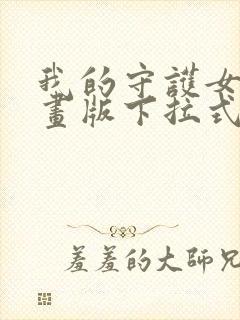 我的守護女
畫版下拉式
羞羞的大師兄